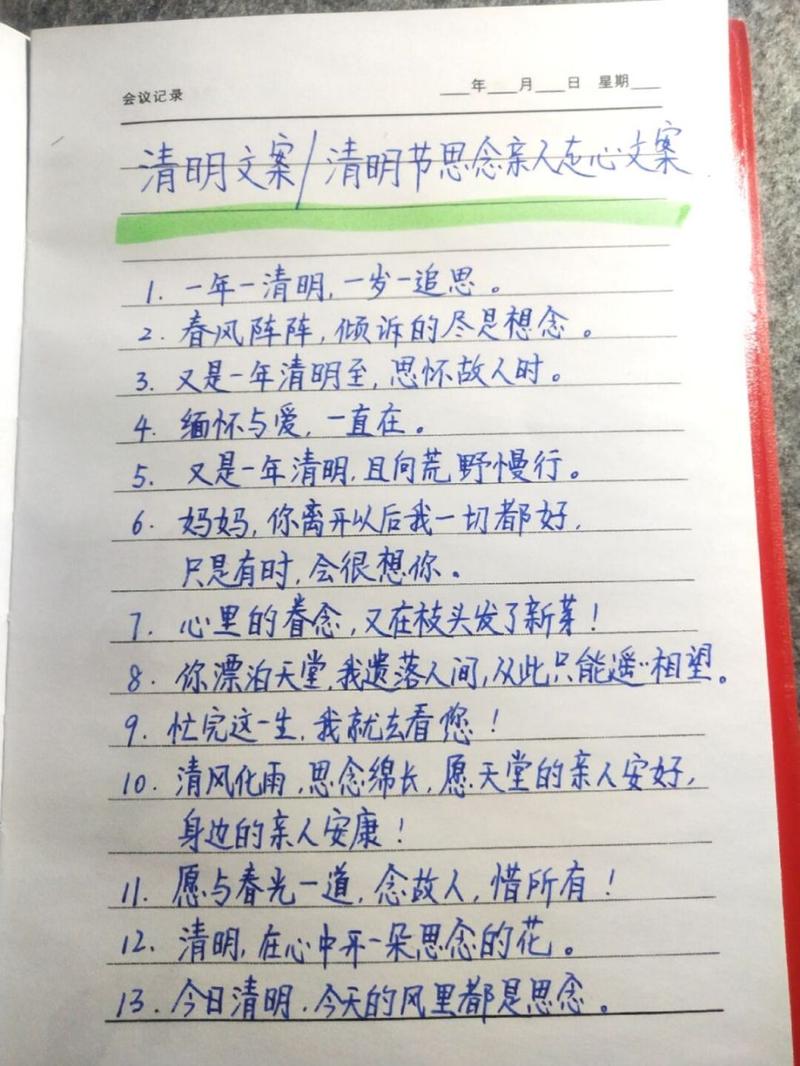 会议记录 ___年___月___日 星期___
清明文案/清明节思念亲人走心文案
1. 一年一清明,一岁一追思。
2. 春风阵阵,倾诉的尽是想念。
3. 又是一年清明至,思怀故人时。
4. 缅怀与爱,一直在。
5. 又是一年清明,且向荒野慢行。
6. 妈妈,你离开以后我一切都好,
只是有时,会很想你。
7. 心里的眷念,又在枝头发了新芽!
8. 你漂泊天堂,我遗落人间,从此只能遥〃相望。
9. 忙完这一生,我就去看您!
10. 清风化雨,思念绵长,愿天堂的亲人安好,
身边的亲人安康!
11. 愿与春光一道,念故人,惜所有!
12. 清明,在心中开一朵思念的花。
13. 今日清明.今天的风里都是思念。